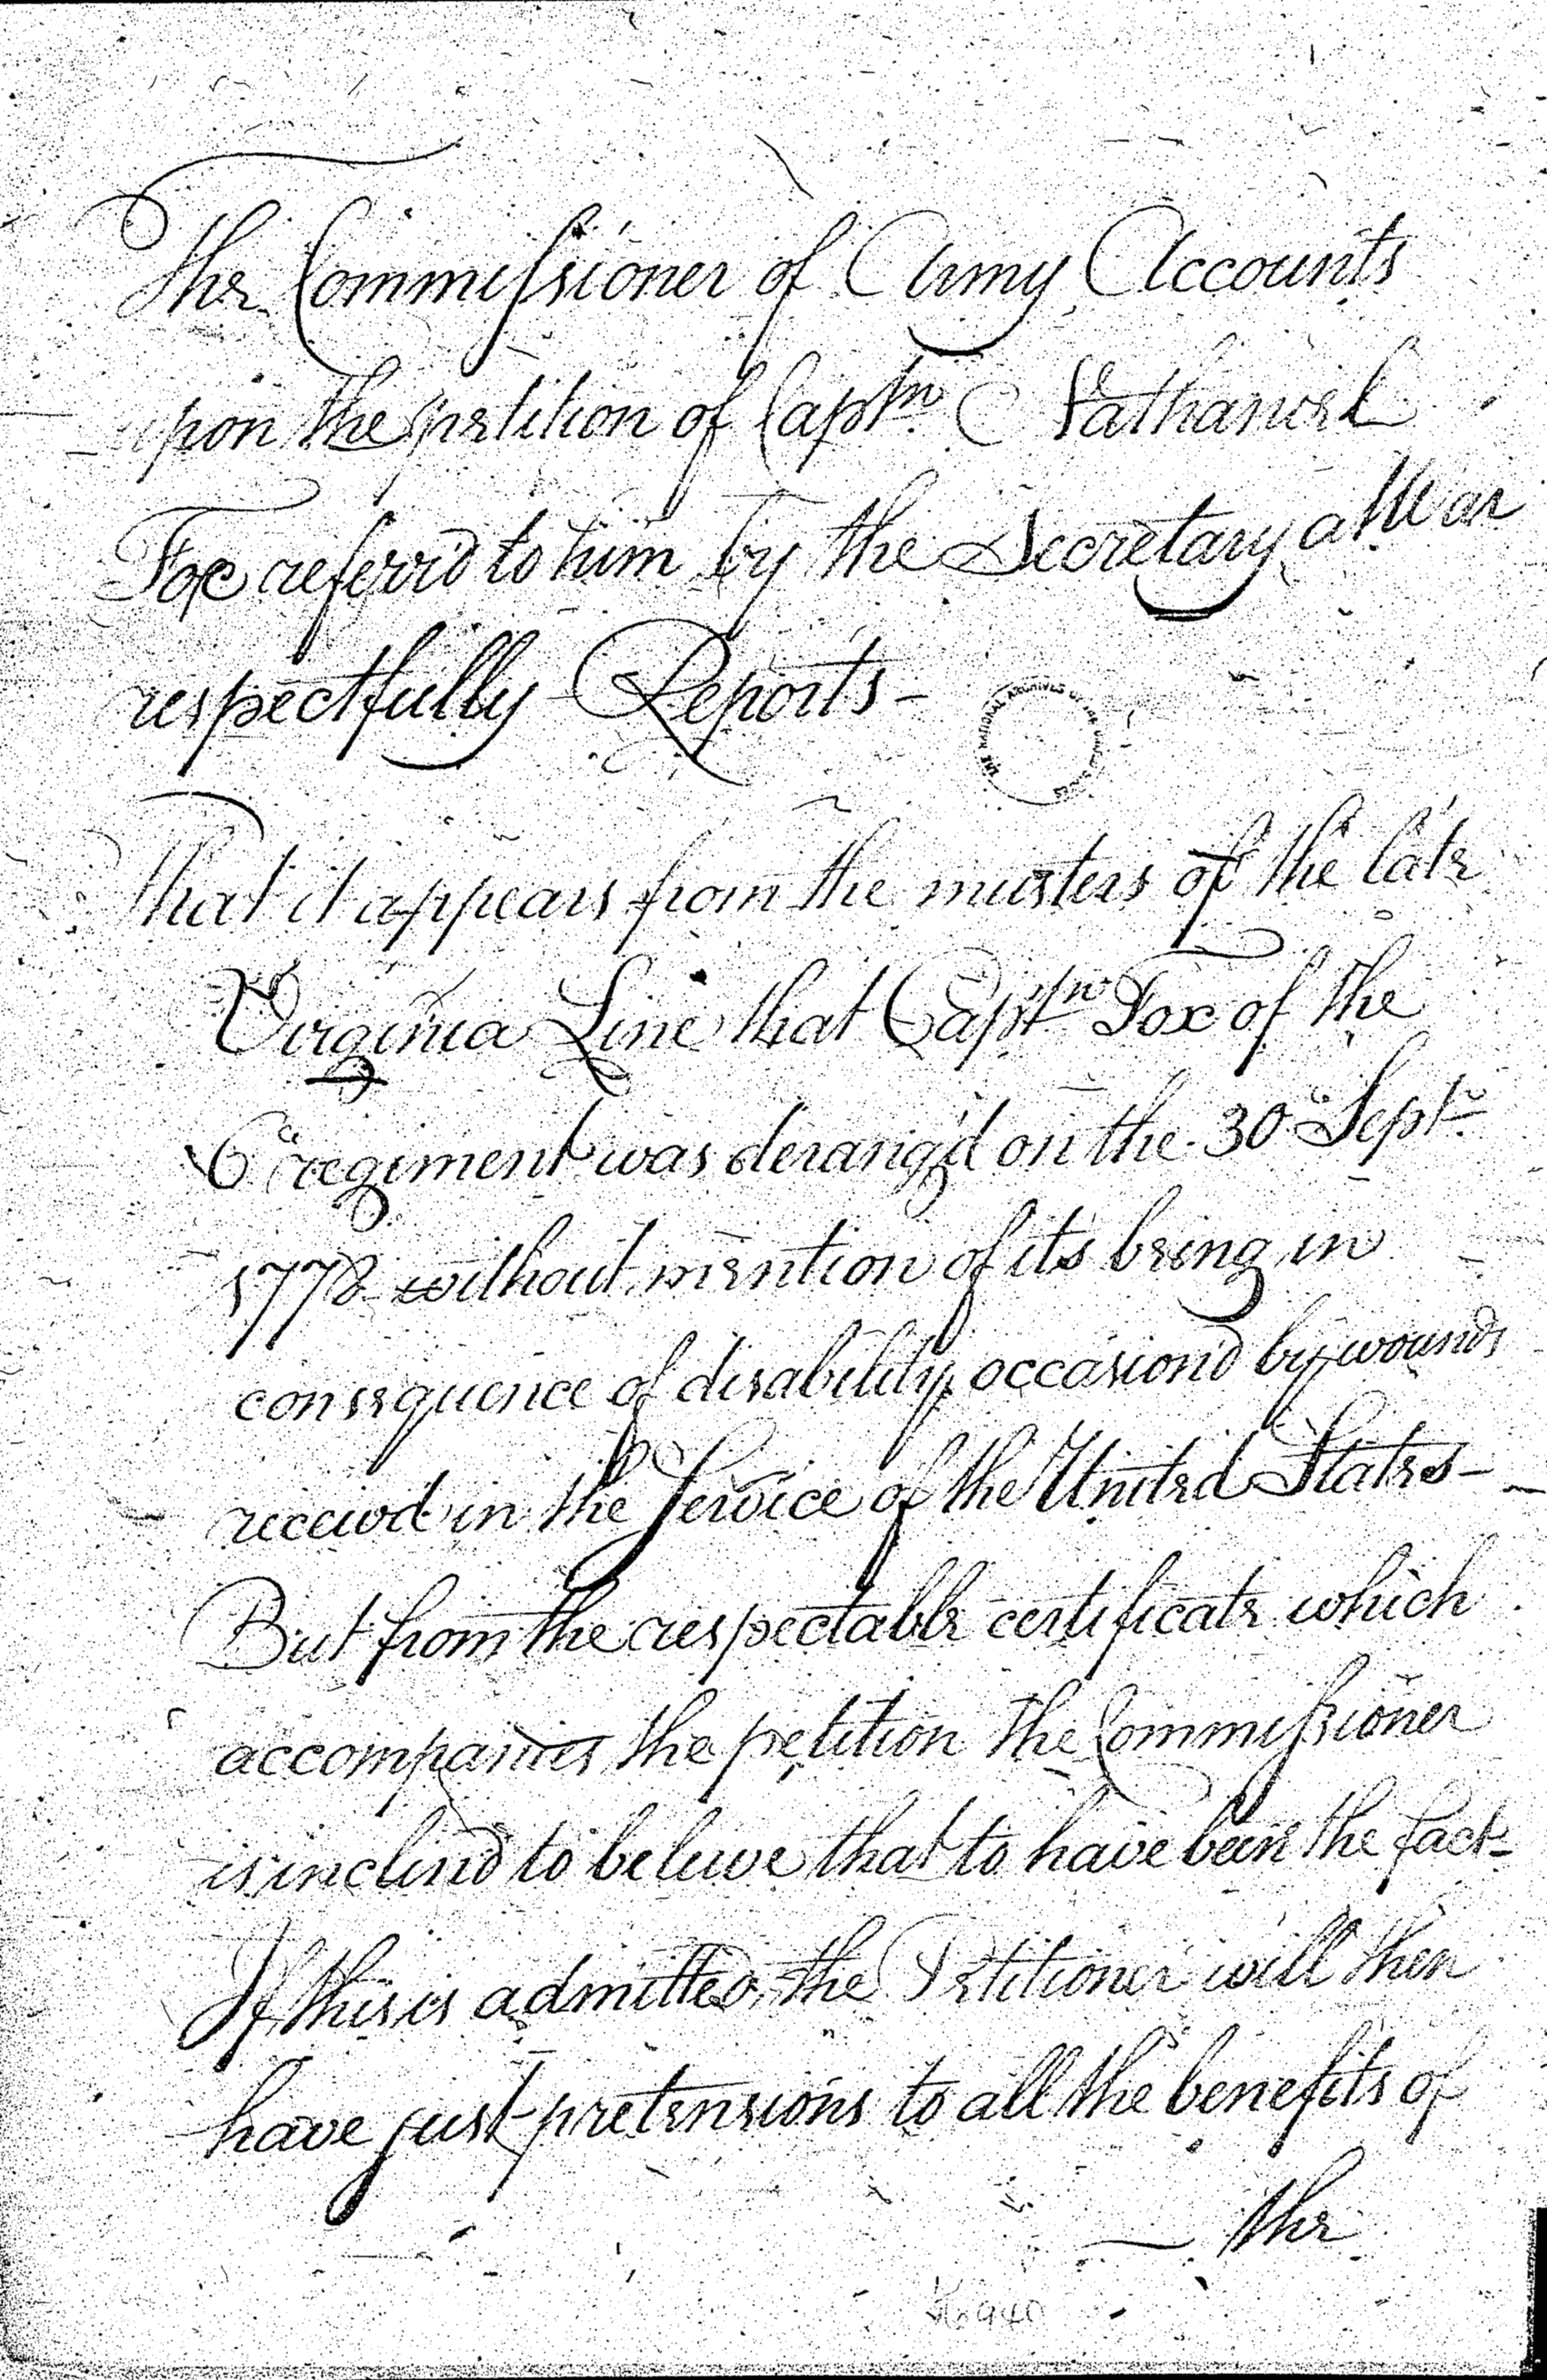 The Commissioner of Army Accounts
upon the petition of Captn. Nathaniel
Fox referr'd to him by the Secretary at War
respectfully Reports-
That it appears from the musters of the late
Virginia Line that Captn Fox of the
6th regiment was derang'd on the 30 Septr
1778 without mention of its being in
consequence of disability occasion'd by wounds
receiv'd in the Service of the United States-
But from the respectable certificate which
accompanies the petition the Commissioner
is inclin'd to believe that to have been the fact-
If this is admitted, the Petitioner will then
have just pretensions to all the benefits of
the